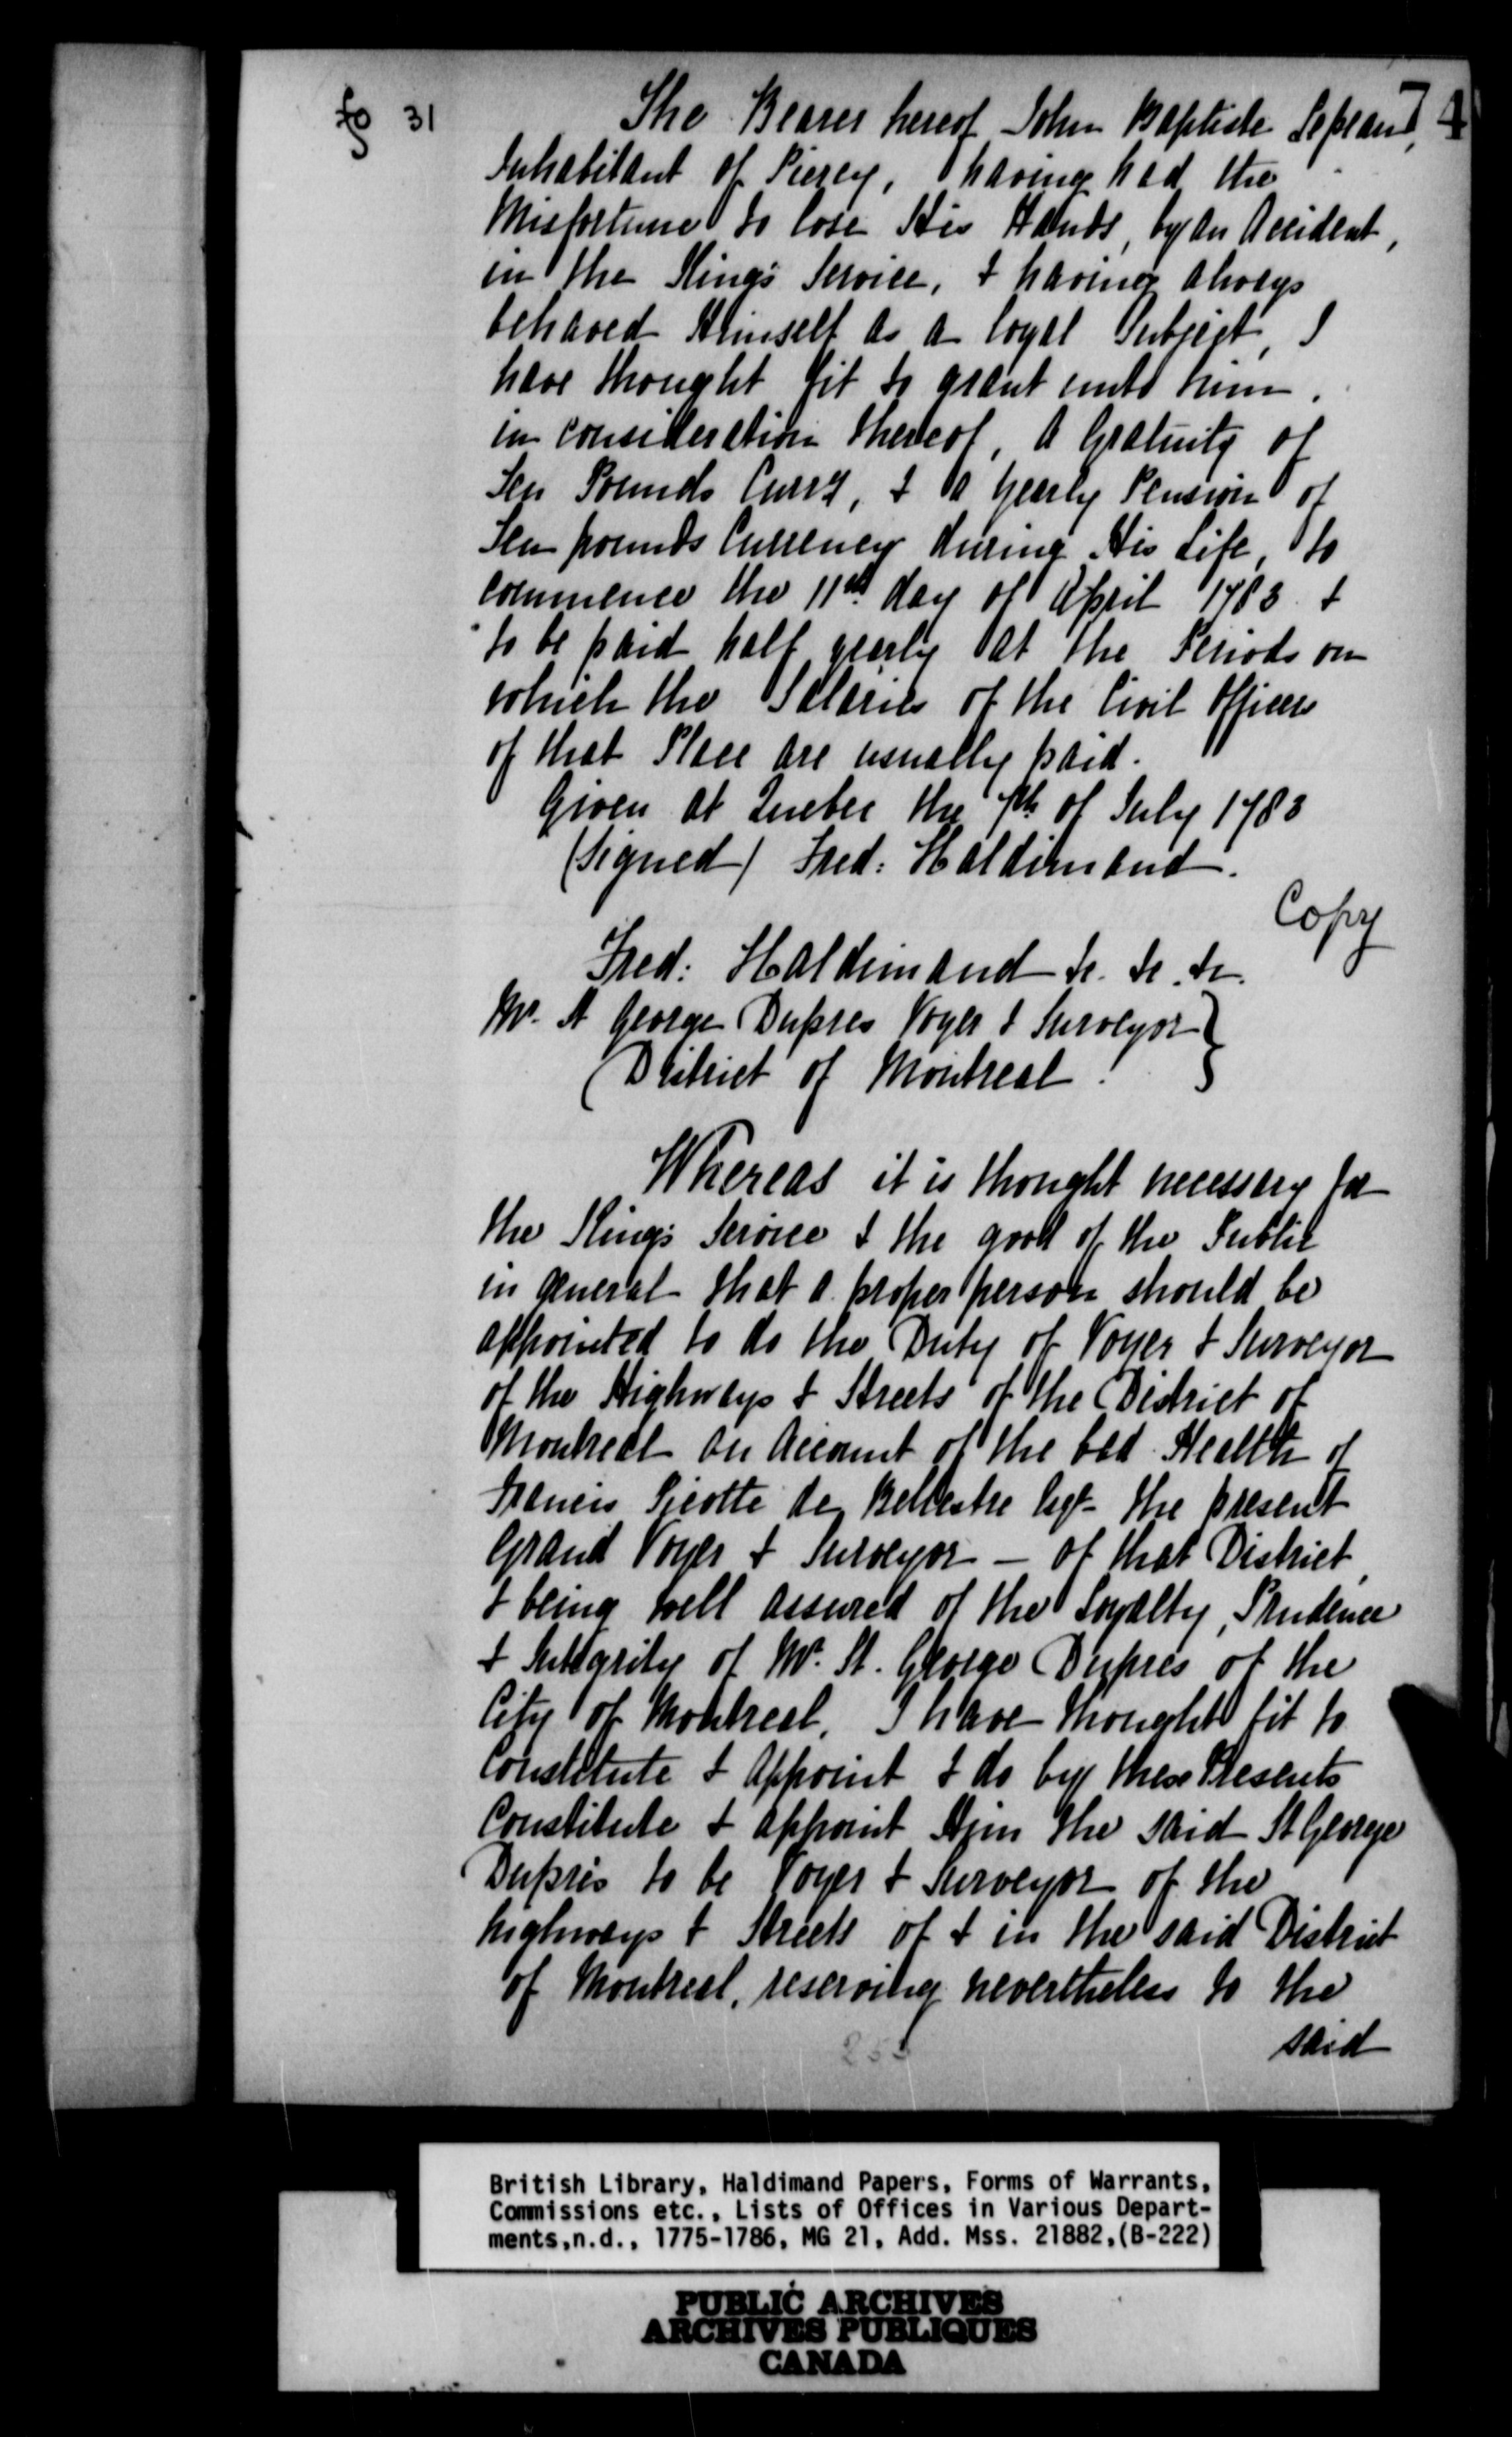 fo 31
74
The Bearer hereof John Baptiste Sepean,
Inhabitant of Piercy, having had the
Misfortune to lose His Hands, by an Accident,
in the King's Service, & having always
behaved Himself as a loyal Subject, I
have thought fit to grant unto him,
in consideration thereof, a Gratuity of
Ten Pounds Curry, & a Yearly Pension of
Ten pounds Currency during His Life, to
commence the 11th day of April 1783 &
to be paid half yearly at the Periods on
which the Salaries of the Civil Officers
of that Place are usually paid.
Given at Quebec the 7th of July 1783
(Signed) Fred: Haldimand.
Copy
Fred: Haldimand &c. &c. &c.
Mr. St George Dupres Voyer & Surveyor
District of Montreal.
Whereas it is thought necessary for
the King's Service & the good of the Public
in general that a proper person should be
appointed to do the Duty of Voyer & Surveyor
of the Highways & Streets of the District of
Montreal on Account of the bad Health of
Francis Picotte de Bellestre Esqr the present
Grand Voyer & Surveyor - of that District,
& being well assured of the Loyalty, Prudence
& Integrity of Mr. St. George Dupres of the
City of Montreal, I have thought fit to
Constitute & Appoint & do by these Presents
Constitute & appoint Him the said St George
Dupres to be Voyer & Surveyor of the
highways & Streets of & in the said District
of Montreal, reserving nevertheless to the
said
British Library, Haldimand Papers, Forms of Warrants,
Commissions etc., Lists of Offices in Various Depart-
ments,n.d., 1775-1786, MG 21, Add. Mss. 21882,(B-222)
PUBLIC ARCHIVES
ARCHIVES PUBLIQUES
CANADA